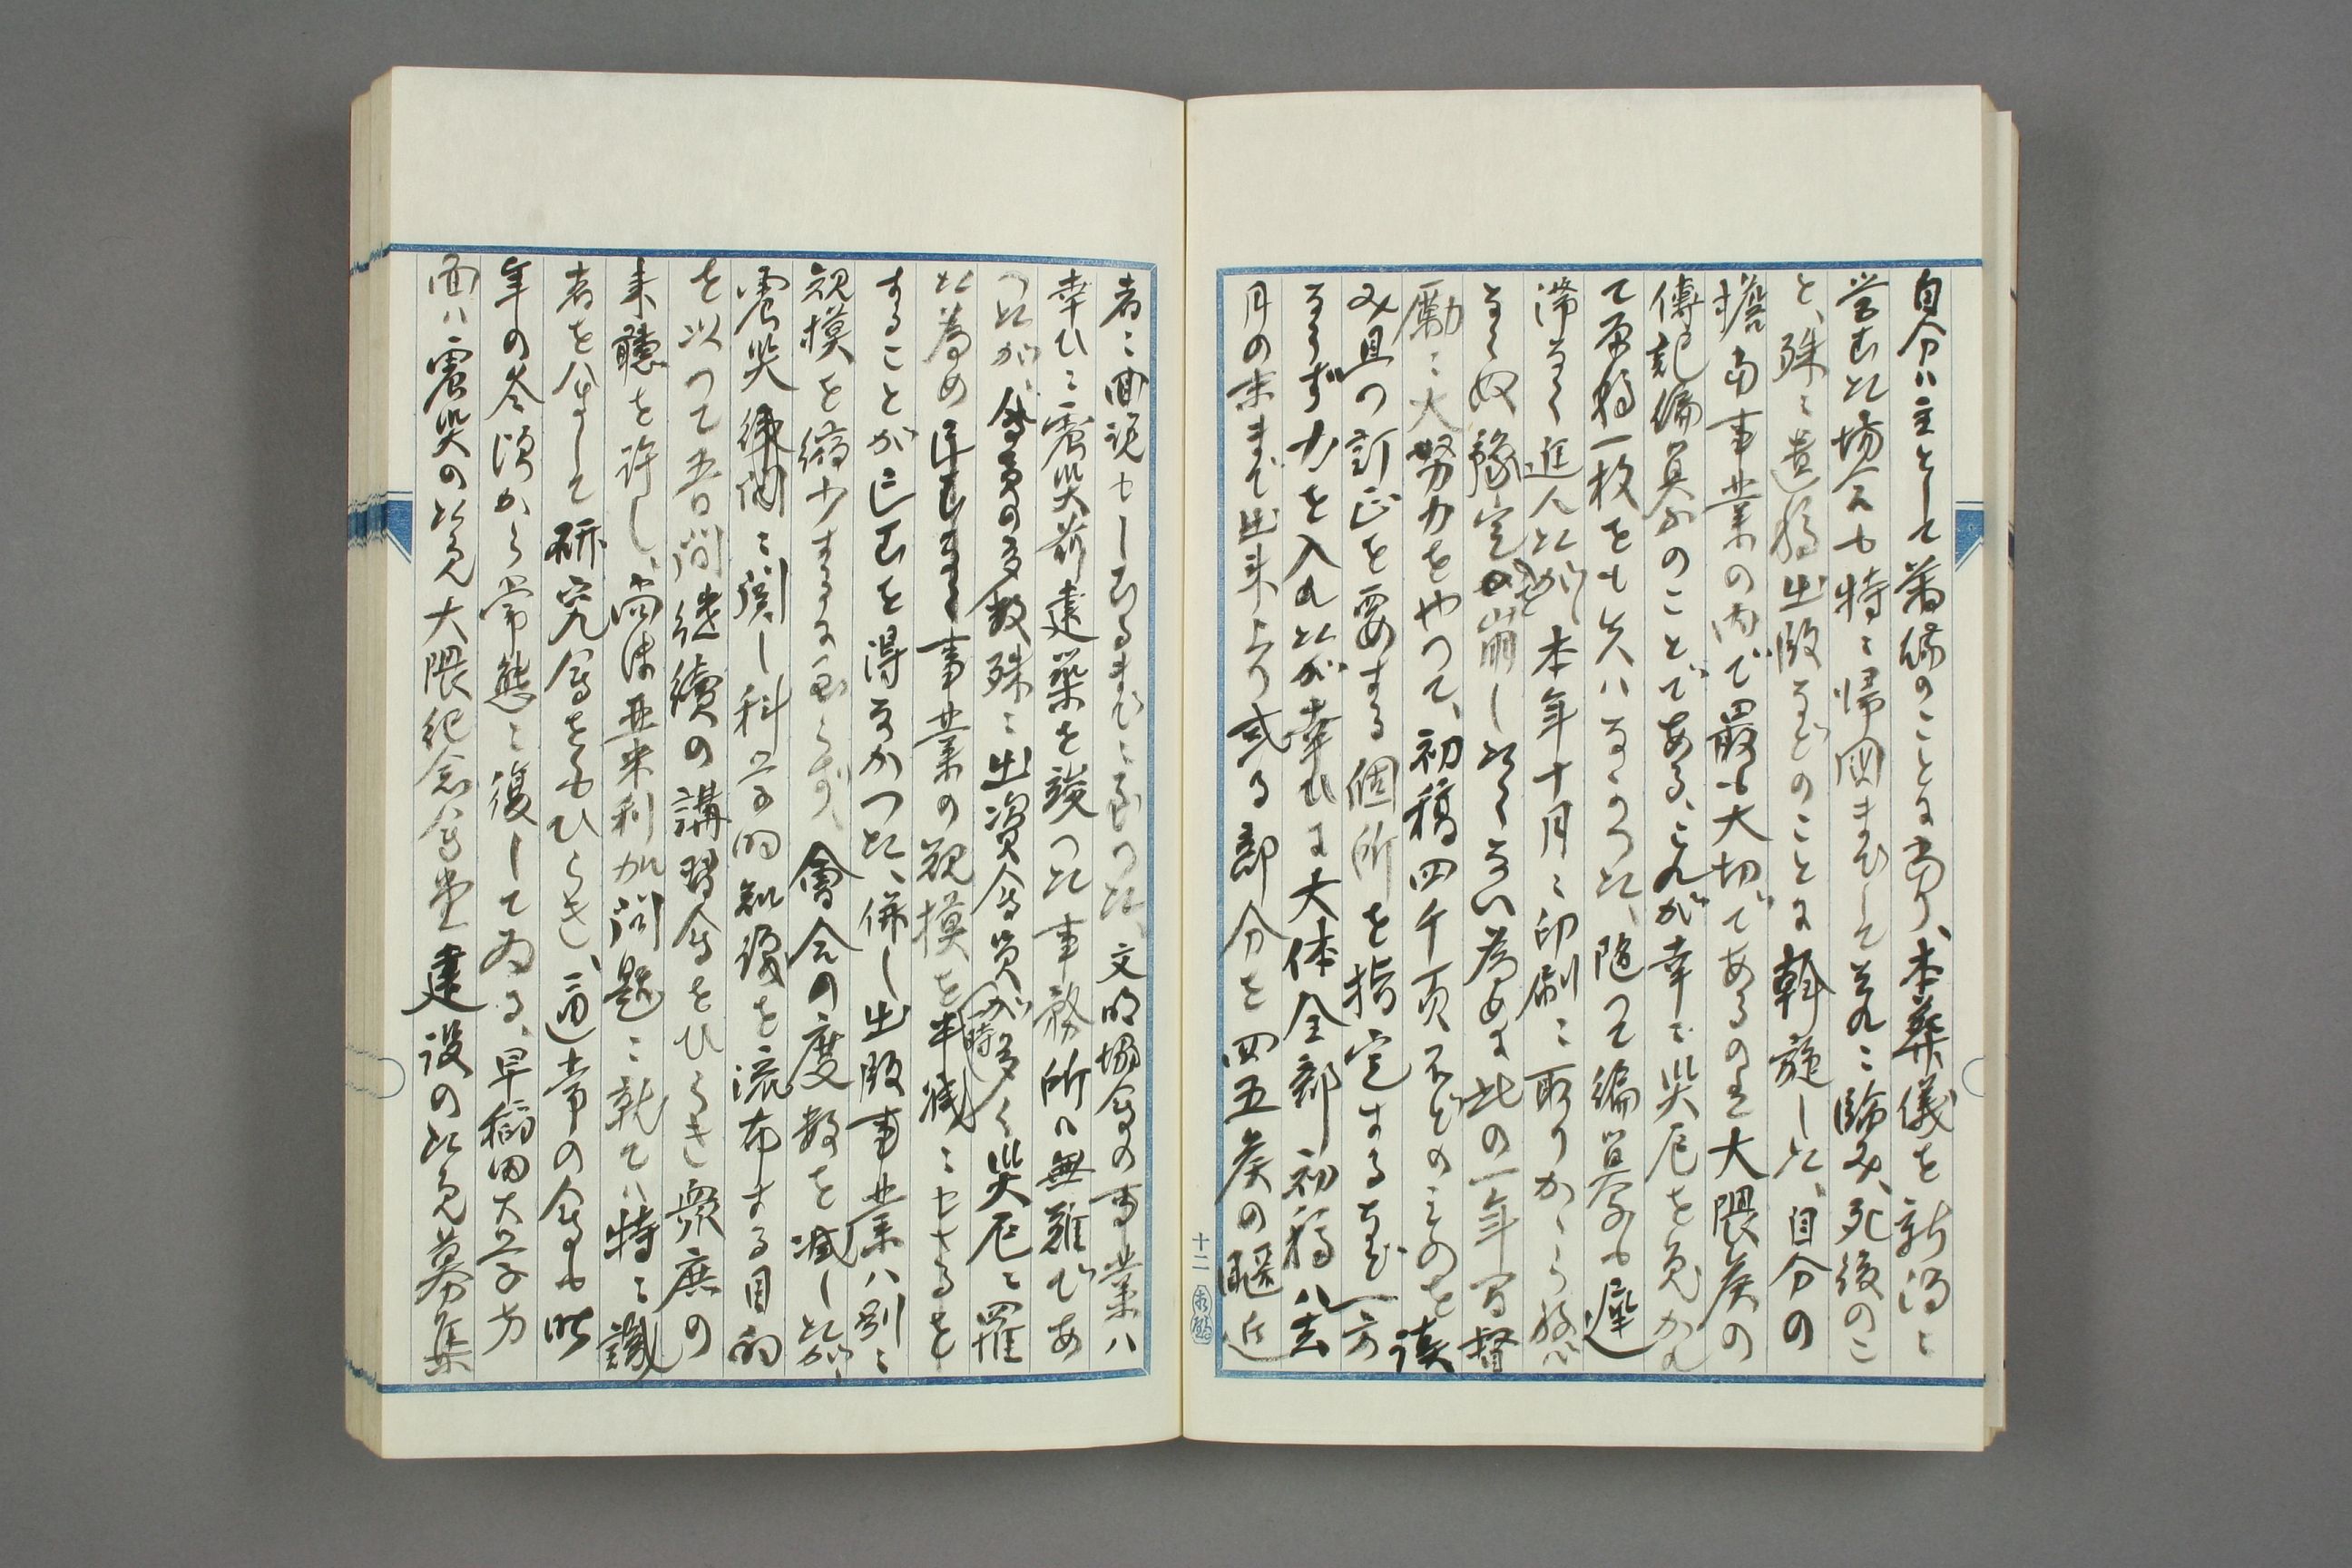 自分ハ主として著作のことに当り、本葬儀を新潟に
営むた場合にも特に帰国までして之れに臨み、死後のこ
と、殊に遺稿出版などのことに斡旋した、自分の
擔当事業の内で最も大切であるのは大隈侯の
傳記編纂のことである、これが幸に災厄を免かれ
て原稿一枚をも失ハなかつた、随つて編纂も遅
滞なく進んだが、本年十月に印刷に取りかゝる
なる故豫定を崩したくない為めに此の一年間督
勵に大努力をやつて、初稿四千頁ほどのものを讀
み且つ訂正を要する個所を指定するなど一方
ならず力を入れたが幸ひに大体全部初稿ハ去
月の末まで出来上り或る部分を四五侯の
十二
者に面託もしたるまでに至つた、文明協会の事業ハ
幸ひに震災前建築を竣つた事務所ハ無難であ
つたが、会員の多数殊に出資会員が(時)多く災厄に罹
た為め事業の規模を半減にせざるを
することが已むを得なかつた、併し出版事業ハ別に
規模を縮少するに至らず、會合の度数を減したが、
震災後間に関し科学的知識を流布する目的
を以つて五日間継續の講習会をひらき衆庶の
来聽を許し、尚ほ亜米利加問題に就ては特に識
者を介して研究会をもひらき、通常の会も昨
年の冬頃から常態に復してゐる、早稲田大学方
面ハ震災のため大隈紀念会堂建設のため募集